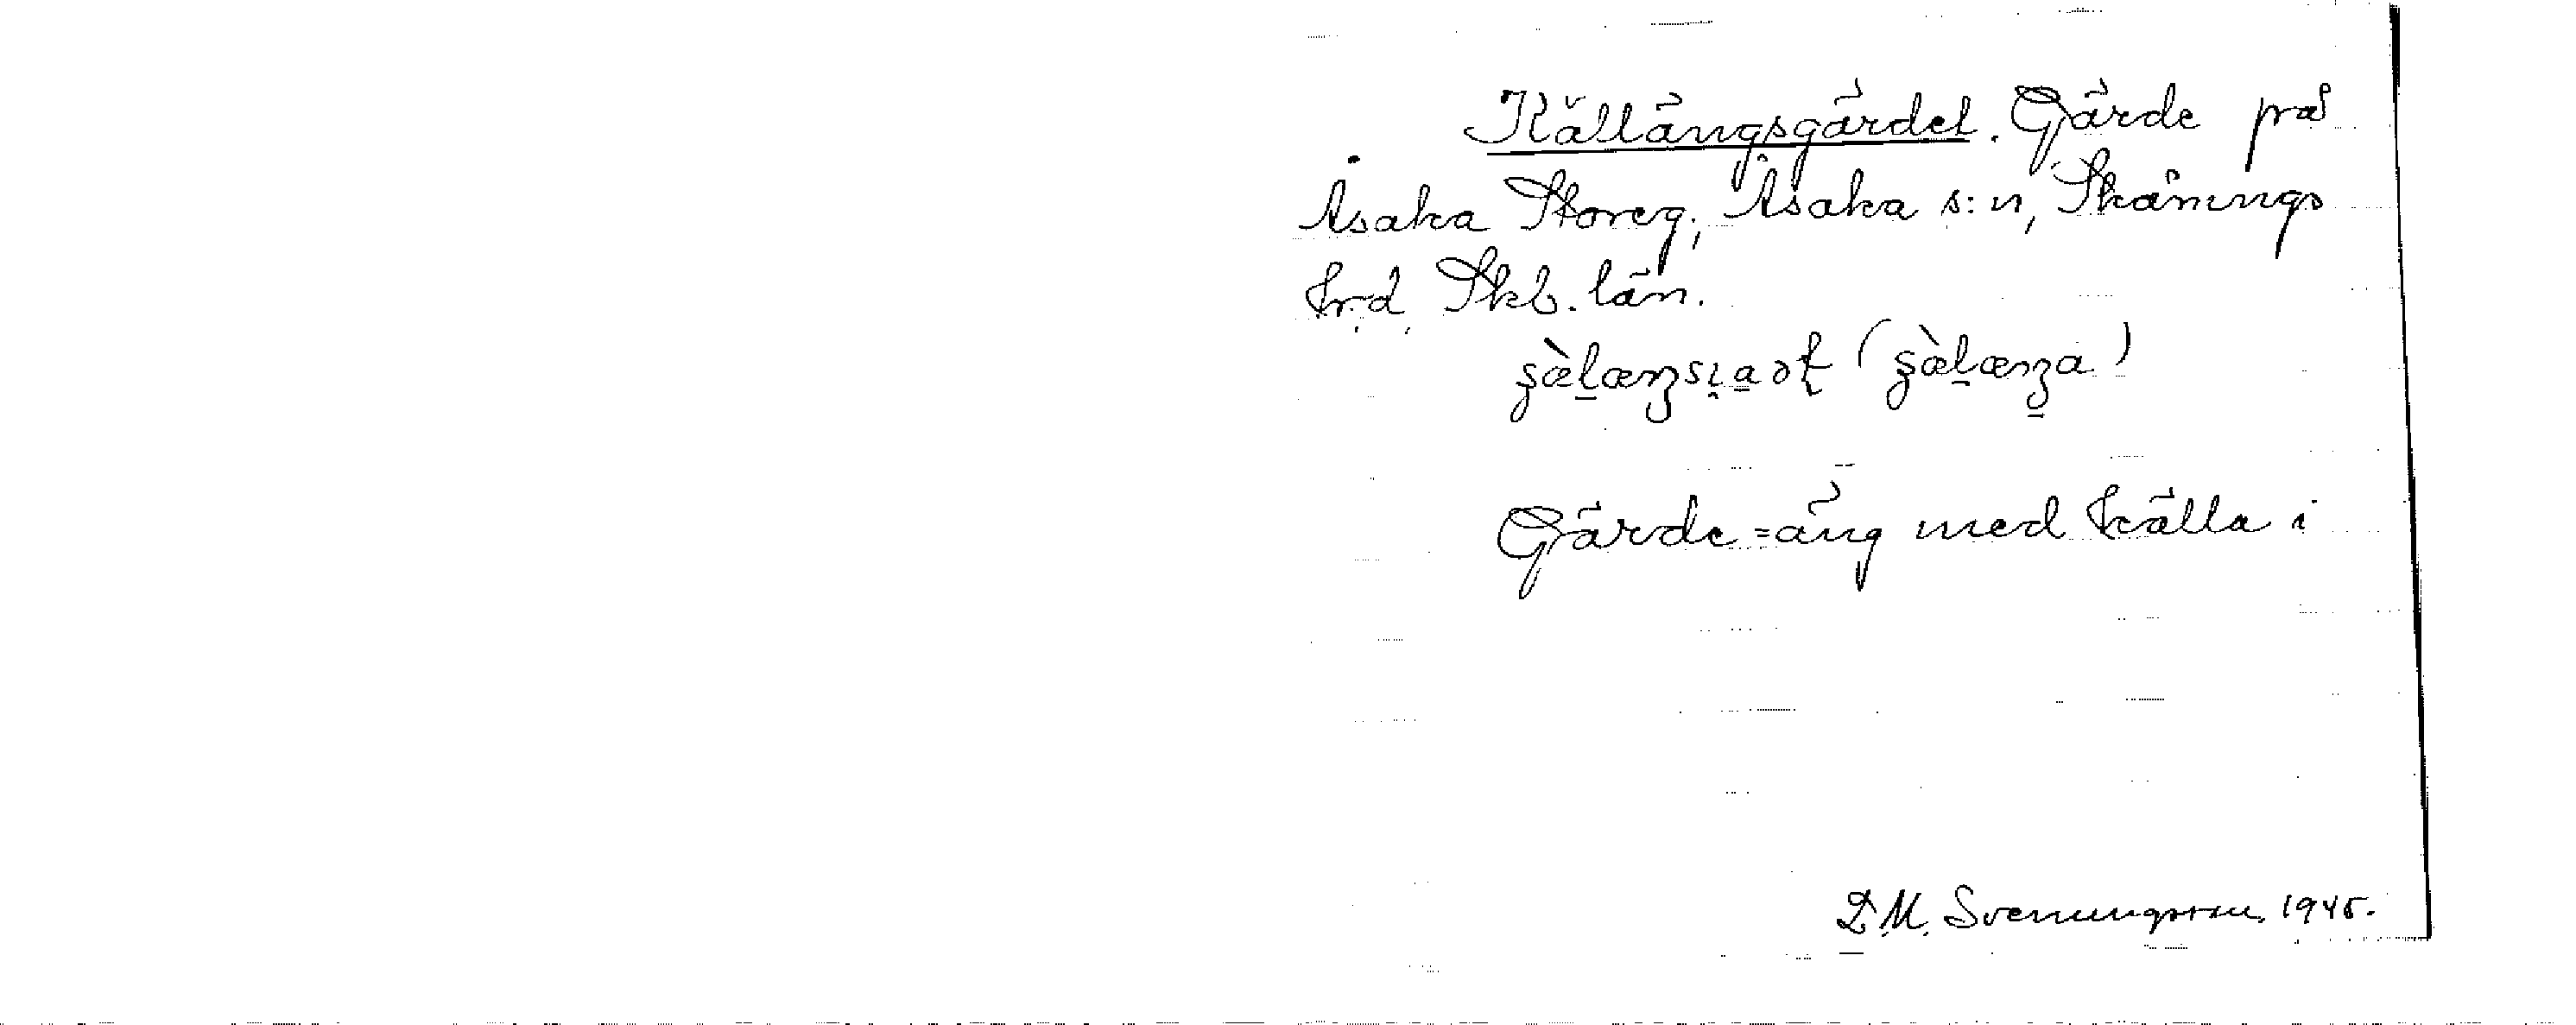 Källängsgärdet. Gärde på
Åsaka Storeg., Åsaka s:n, Skånings
hrd, Skb. län.
Gärde = äng med källa i
S.M. Svenungsson 1945.